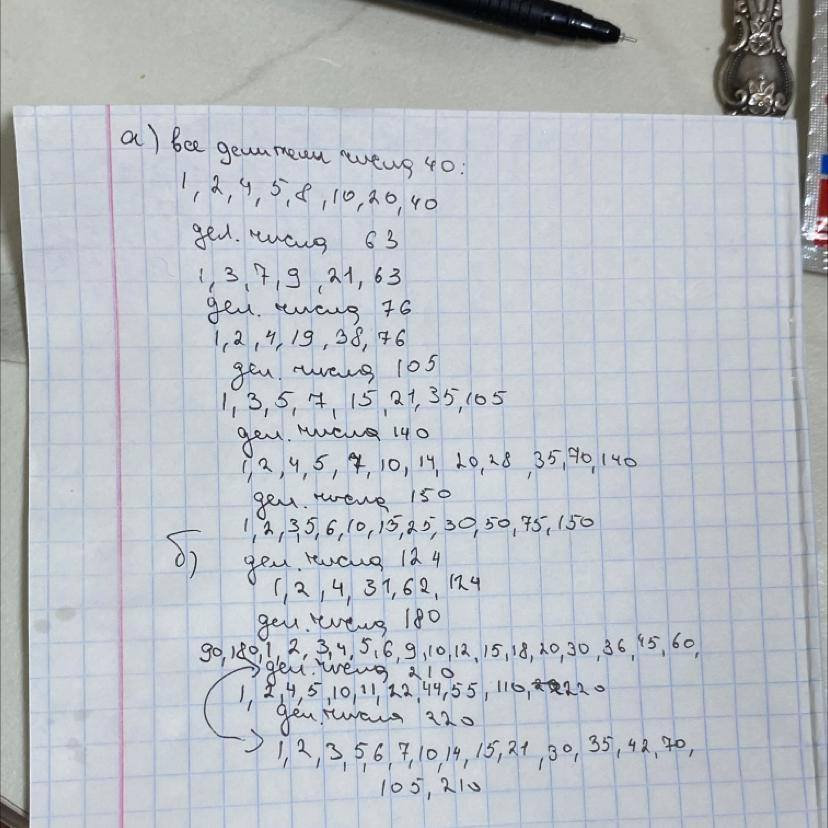 а) все делители числа 40:
1, 2, 4, 5, 8, 10, 20, 40
дел. числа 63
1, 3, 7, 9, 21, 63
дел. числа 76
1, 2, 4, 19, 38, 76
дел. числа 105
1, 3, 5, 7, 15, 21, 35, 105
дел. числа 140
1, 2, 4, 5, 7, 10, 14, 20, 28, 35, 70, 140
дел. числа 150
1, 2, 3, 5, 6, 10, 15, 25, 30, 50, 75, 150
б) дел. числа 124
1, 2, 4, 31, 62, 124
дел. числа 180
90, 180, 1, 2, 3, 4, 5, 6, 9, 10, 12, 15, 18, 20, 30, 36, 45, 60,
дел. числа 210
1, 2, 4, 5, 10, 11, 22, 44, 55, 110, 220
дел. числа 220
1, 2, 3, 5, 6, 7, 10, 14, 15, 21, 30, 35, 42, 70,
105, 210